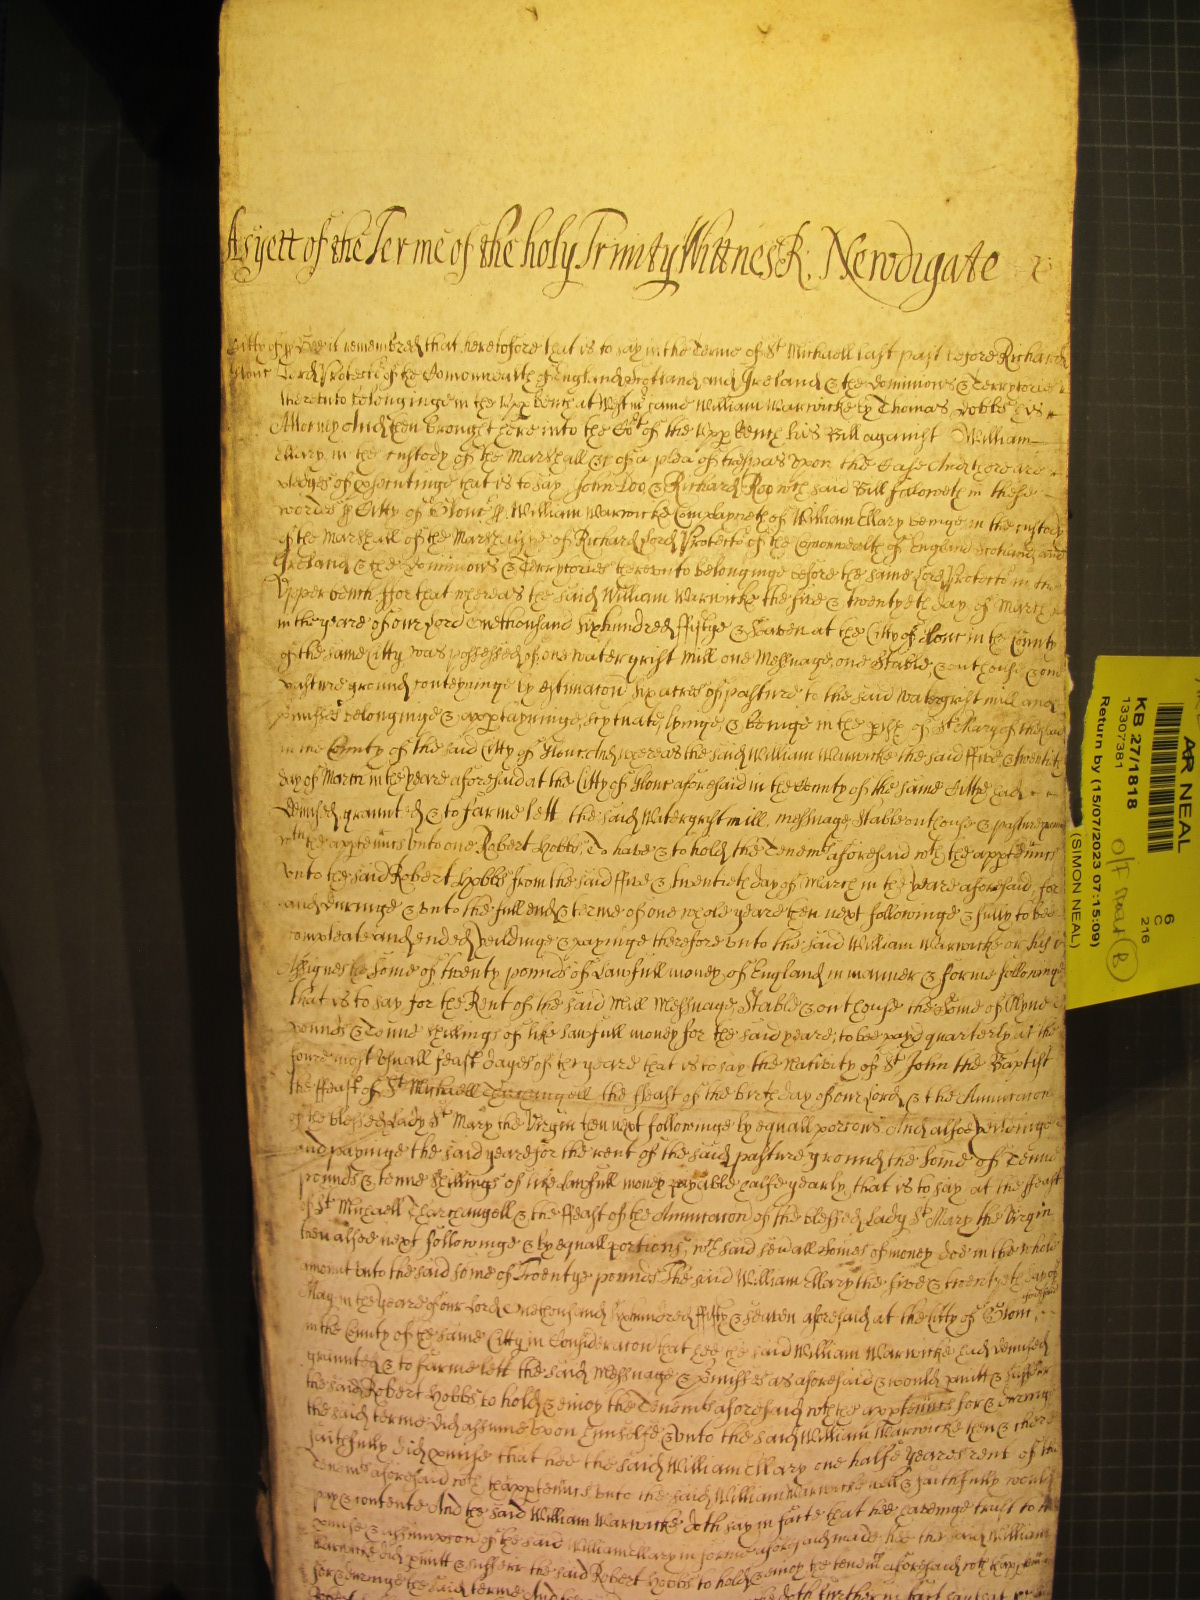 As yett of the Terme of the holy Trinity Wittnes R: Newdigate
Citty of Bee it remembred that heretofore that is to say in the Terme of St Michaell last past before Richard
Glouc Lord Protector of the Comonwealth of England Scotland and Ireland & the Dominions & Terrytories
thereunto belonginge in the Upp bench at Westmr came William Warwicke by Thomas Dobbs his
Attorny And then brought here into the Cort of the Upp bench his Bill against William
Ellary in the custody of the Marshall &c of a plea of trespas upon the Case And there are
pledges of prosecutinge that is to say John Doo & Richard Roo wch said Bill followeth in these
wordes ss Citty of Glouc ss William Warwicke Complayneth of William Ellary beinge in the custody
of the Marshall of the Marshalsye of Richard Lord Protector of the Comonwealth of England Scotland and
Ireland & the Dominions & Terrytories thereunto belonginge before the same Lord Protector in the
Upper bench ffor that whereas the said William Warwicke the five & twentyeth day of March
in the yeare of our Lord One thousand six hundred ffiftye & seaven at the Citty of Glouc in the County
of the same Citty was possessed of one water grist mill one Messuage, one Stable, & outhouse & one
pasture ground conteyninge by estimacon six acres of pasture to the said water grist mill and
pmisses belonginge & apptayninge, scytuate, lyinge, & beinge in the psh of St Mary of the
in the County of the said Citty of Glouc And whereas the said William Warwicke the said ffive & twentieth
day of March in the yeare aforesaid at the Citty of Glouc aforesaid in the County of the same Cittye had
demised, graunted & to farme lett the said Watergrist mill, messuage, Stable outhouse & pasture ground
wth the apptenncs Unto one Robert Hobbs, To have & to hold the Tenemts aforesaid wth the apptenncs
unto the said Robert Hobbs from the said ffive & twentieth day of March in the yeare aforesaid, for
and duringe & unto the full end & terme of one whole yeare then next followinge & fully to bee
compleate and ended yeildinge & payinge therefore unto the said William Warwicke or his
Assignes the some of twenty pounds of Lawfull money of England in manner & forme followinge
that is to say, for the Rent of the said Mill Messuage, Stable & outhouse the some of Nyne
pounds & Tenne shillings of like lawfull money for the said yeare, to bee payd quarterly at the
foure most usuall feast dayes of the yeare that is to say the Nativity of St John the Baptist
the ffeast of St Michaell Tharchangell the ffeast of the birth day of our Lord & the Annunciacon
of the blessed Lady St Mary the Virgin then next followinge by equall porcons And alsoe yeildinge
and payinge the said yeare for the rent of the said pasture ground the some of Tenne
pounds & tenne shillings of like lawfull money payable halfe yearly, that is to say at the ffeast
of St Michaell Tharchangell & the ffeast of the Annunciacon of the blessed Lady St Mary the Virgin
then alsoe next followinge & by equall portions, wch said sevall somes of money doe in the whole
amount unto the said some of Twentye pounds The said William Ellary the five & twentyeth day of
May in the yeare of our Lord One thousand six hundred ffifty & seaven aforesaid at the Citty of Glouc aforesaid
in the County of the same Citty in Consideracon that hee the said William Warwicke had demised
graunted & to farme lett the said Messuage & pmisses as aforesaid & would pmitt & suffer
the said Robert Hobbs to hold & enioy the Tenemts aforesaid wth the apptenncs for & during
the said terme did assume upon himselfe & unto the said William Warwicke then & there
faithfully did pmise that hee the said William Ellary one halfe yeares rent of the
Tenemts aforesaid wth thapptenncs unto the said William Warwicke well & faithfully would
pay & contente And the said William Warwicke doth say in facte that hee haveinge trust to the
pmise & assumpcon of the said William Ellary in forme aforesaid made hee the said William
Warwicke did pmitt & suffer the said Robert Hobbs to hold & enioy the tenemts aforesaid wth thapptenncs
for & duringe the said terme And doth further in fact
AR NEAL
KB 27/1818
13307381
Return by (15/07/2023 07:15:09)
6
C
216
(SIMON NEAL)